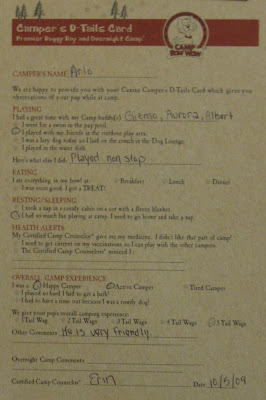 Camper's D-Tails Card
Premier Doggy Day and Overnight Camp®
CAMP
BOW WOW
CAMPER'S NAME Arlo
We are happy to provide you with your Canine Camper's D-Tails Card which gives you
observations of your pup while at camp.
PLAYING
I had a great time with my Camp buddy(s) Gizmo, Aurora, Albert
I went for a swim in the pup pool.
I played with my friends in the outdoor play area.
I was a lazy dog today so I laid on the couch in the Dog Lounge.
I played in the water dish.
Here's what else I did: Played non stop
EATING
I ate everything in my bowl at: Breakfast Lunch Dinner
I was sooo good I got a TREAT!
RESTING/SLEEPING
I took a nap in a comfy cabin on a cot with a fleecy blanket.
I had so much fun playing at camp, I need to go home and take a nap.
HEALTH ALERTS
My Certified Camp Counselor® gave me my medicine. I didn't like that part of camp!
I need to get current on my vaccinations so I can play with the other campers.
The Certified Camp Counselors® noticed I :
OVERALL CAMP EXPERIENCE
I was a Happy Camper Active Camper Tired Camper
I played so hard I had to get a bath!
I had to have a time out because I was a rowdy dog!
We give your pup's overall camping experience:
1 Tail Wag 2 Tail Wags 3 Tail Wags 4 Tail Wags 5 Tail Wags
Other Comments He is very friendly.
Overnight Camp Comments
Certified Camp Counselor® Erin Date 10/5/09